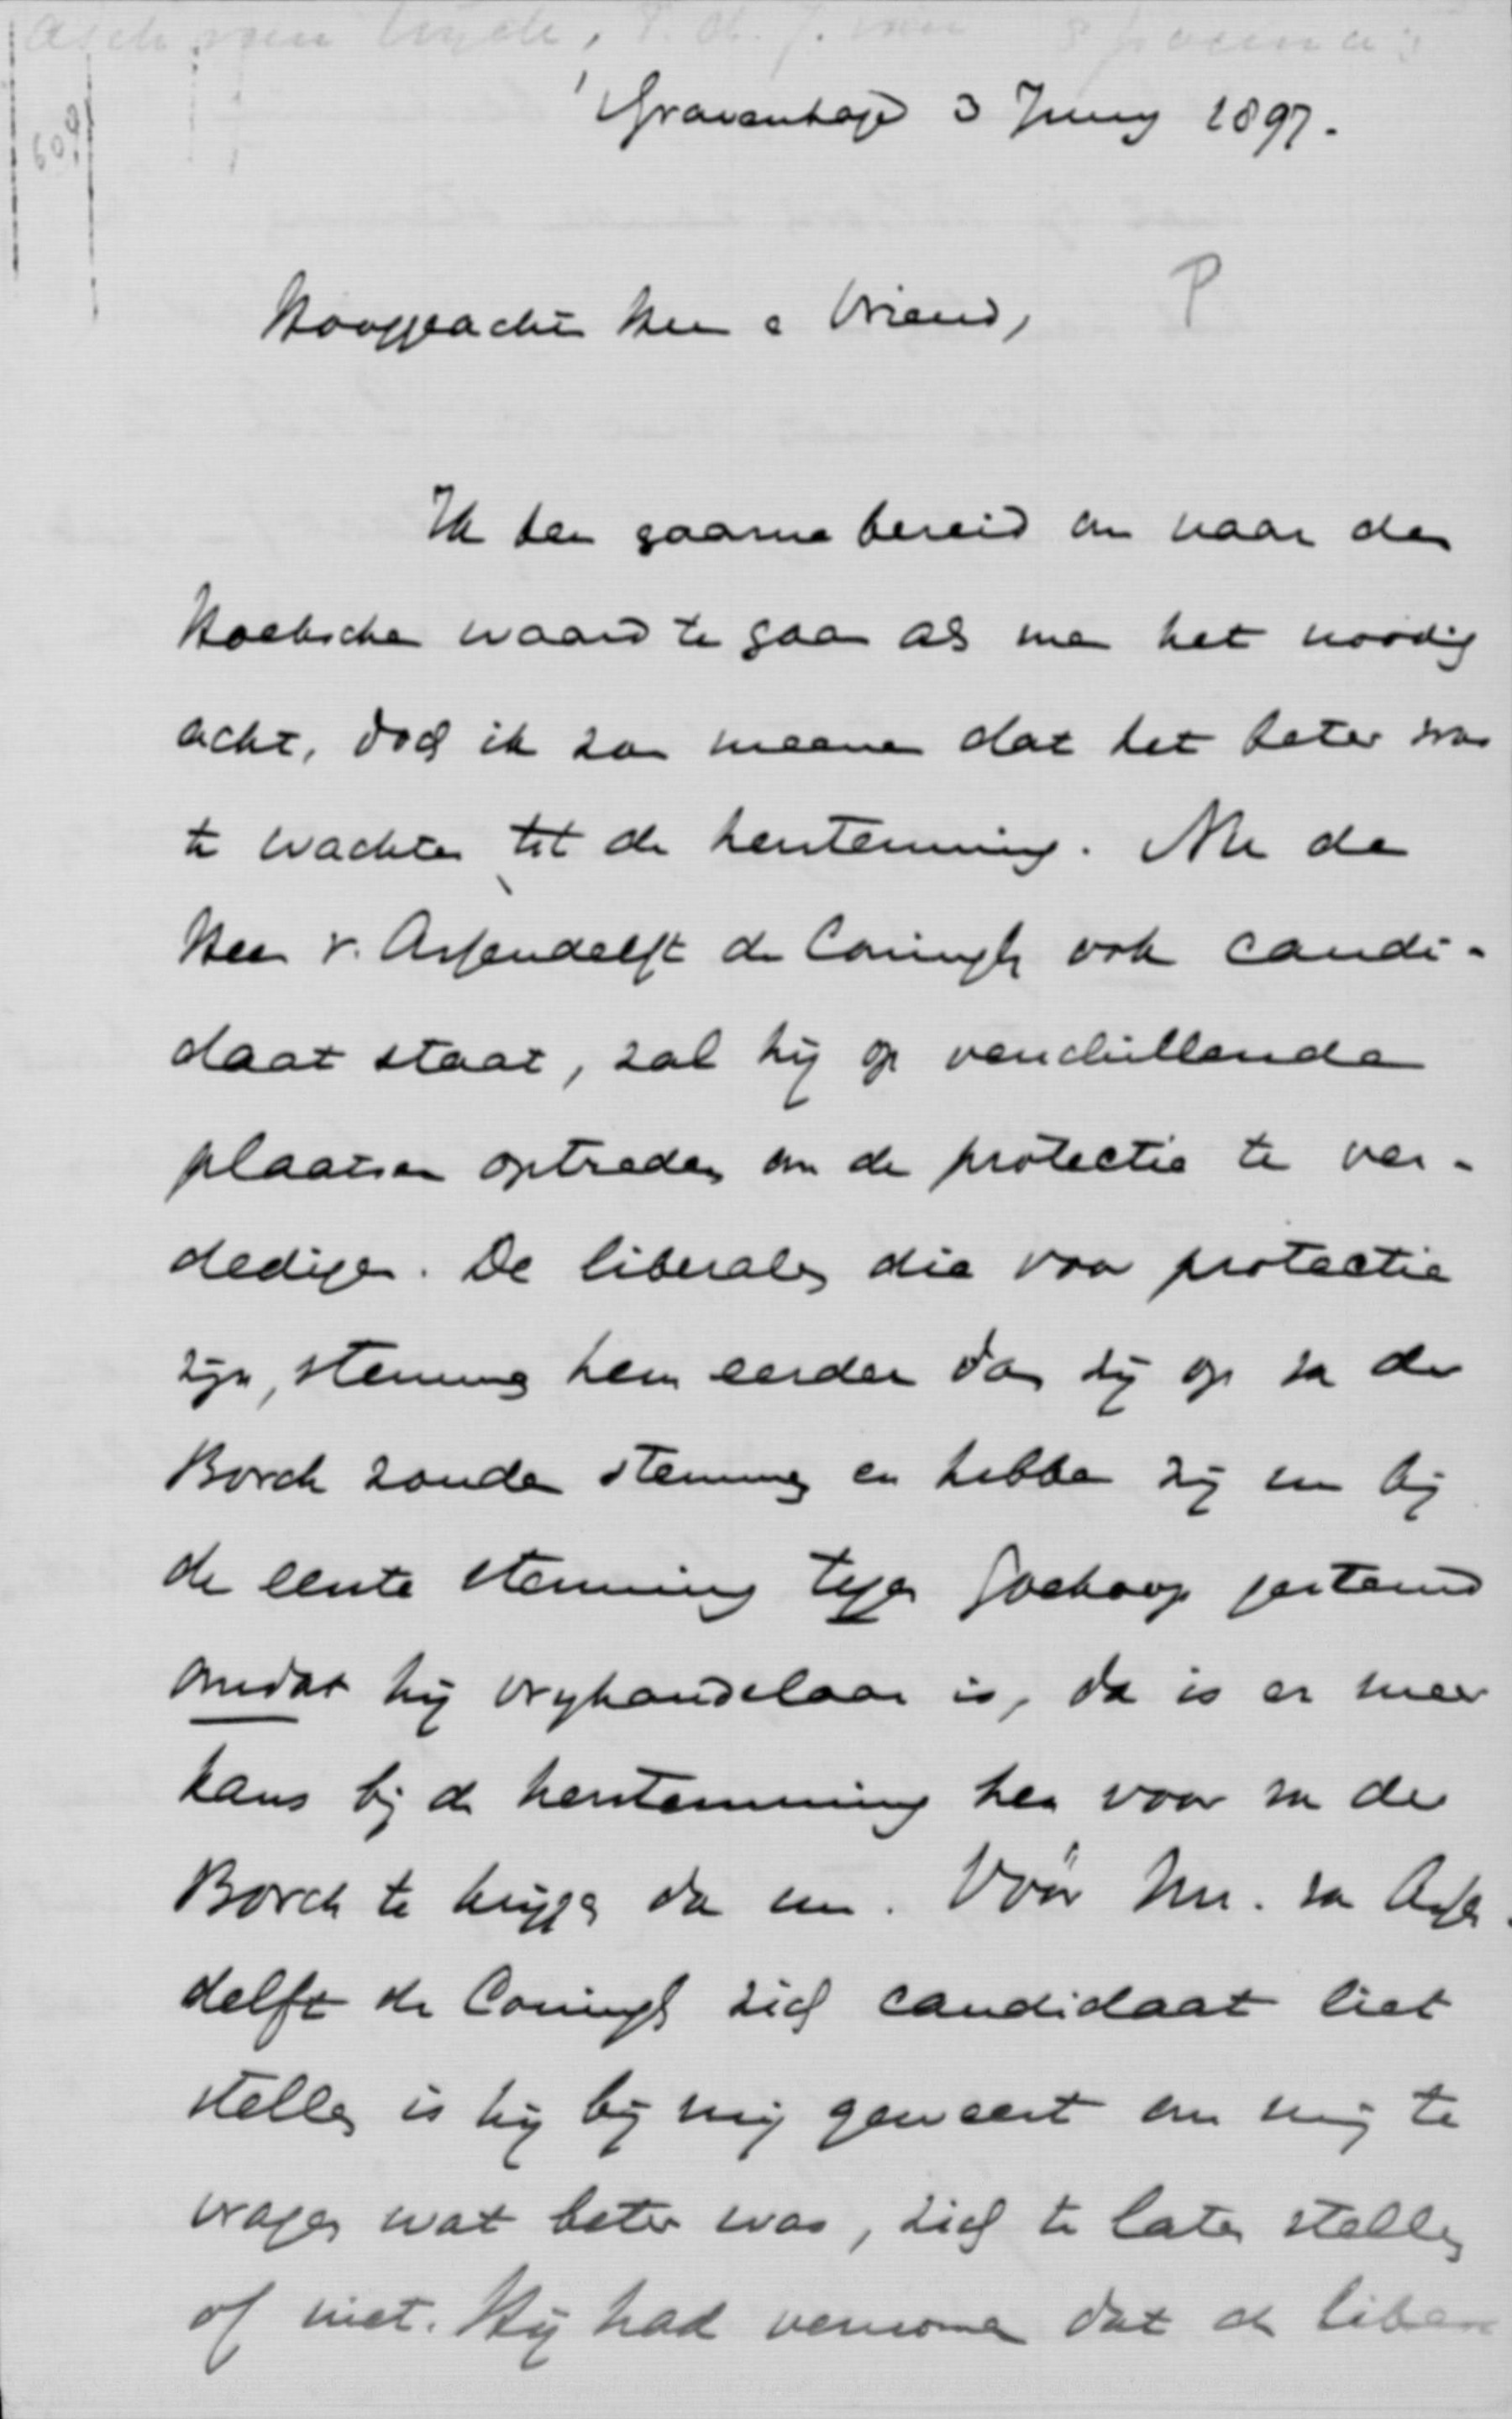 Asch van Wijck,
609
's Gravenhage 3 Juny 1897.
P
Hooggeachte Heer & Vriend,
Ik ben gaarne bereid om naar den
Hoeksche waard te gaan als men het noodig
acht, doch ik zou meenen dat het beter was
te wachten tot de herstemming. Nu de
Heer v. Assendelft de Coningh ook candi-
daat staat, zal hij op verschillende
plaatsen optreden om de protectie te ver-
dedigen. De liberalen die voor protectie
zijn, stemmen hem eerder dan zij op van der
Borch zouden stemmen en hebben zij nu bij
de eerste stemming tegen Goekoop gestemd
omdat hij vryhandelaar is, dan is er meer
kans bij de herstemming hen voor van der
Borch te krijgen dan nu. Vóór Mr. van Assen-
delft de Coningh zich candidaat liet
stellen is hij bij mij geweest om mij te
vragen wat beter was, zich te laten stellen
of niet. Hij had vernomen dat de liber